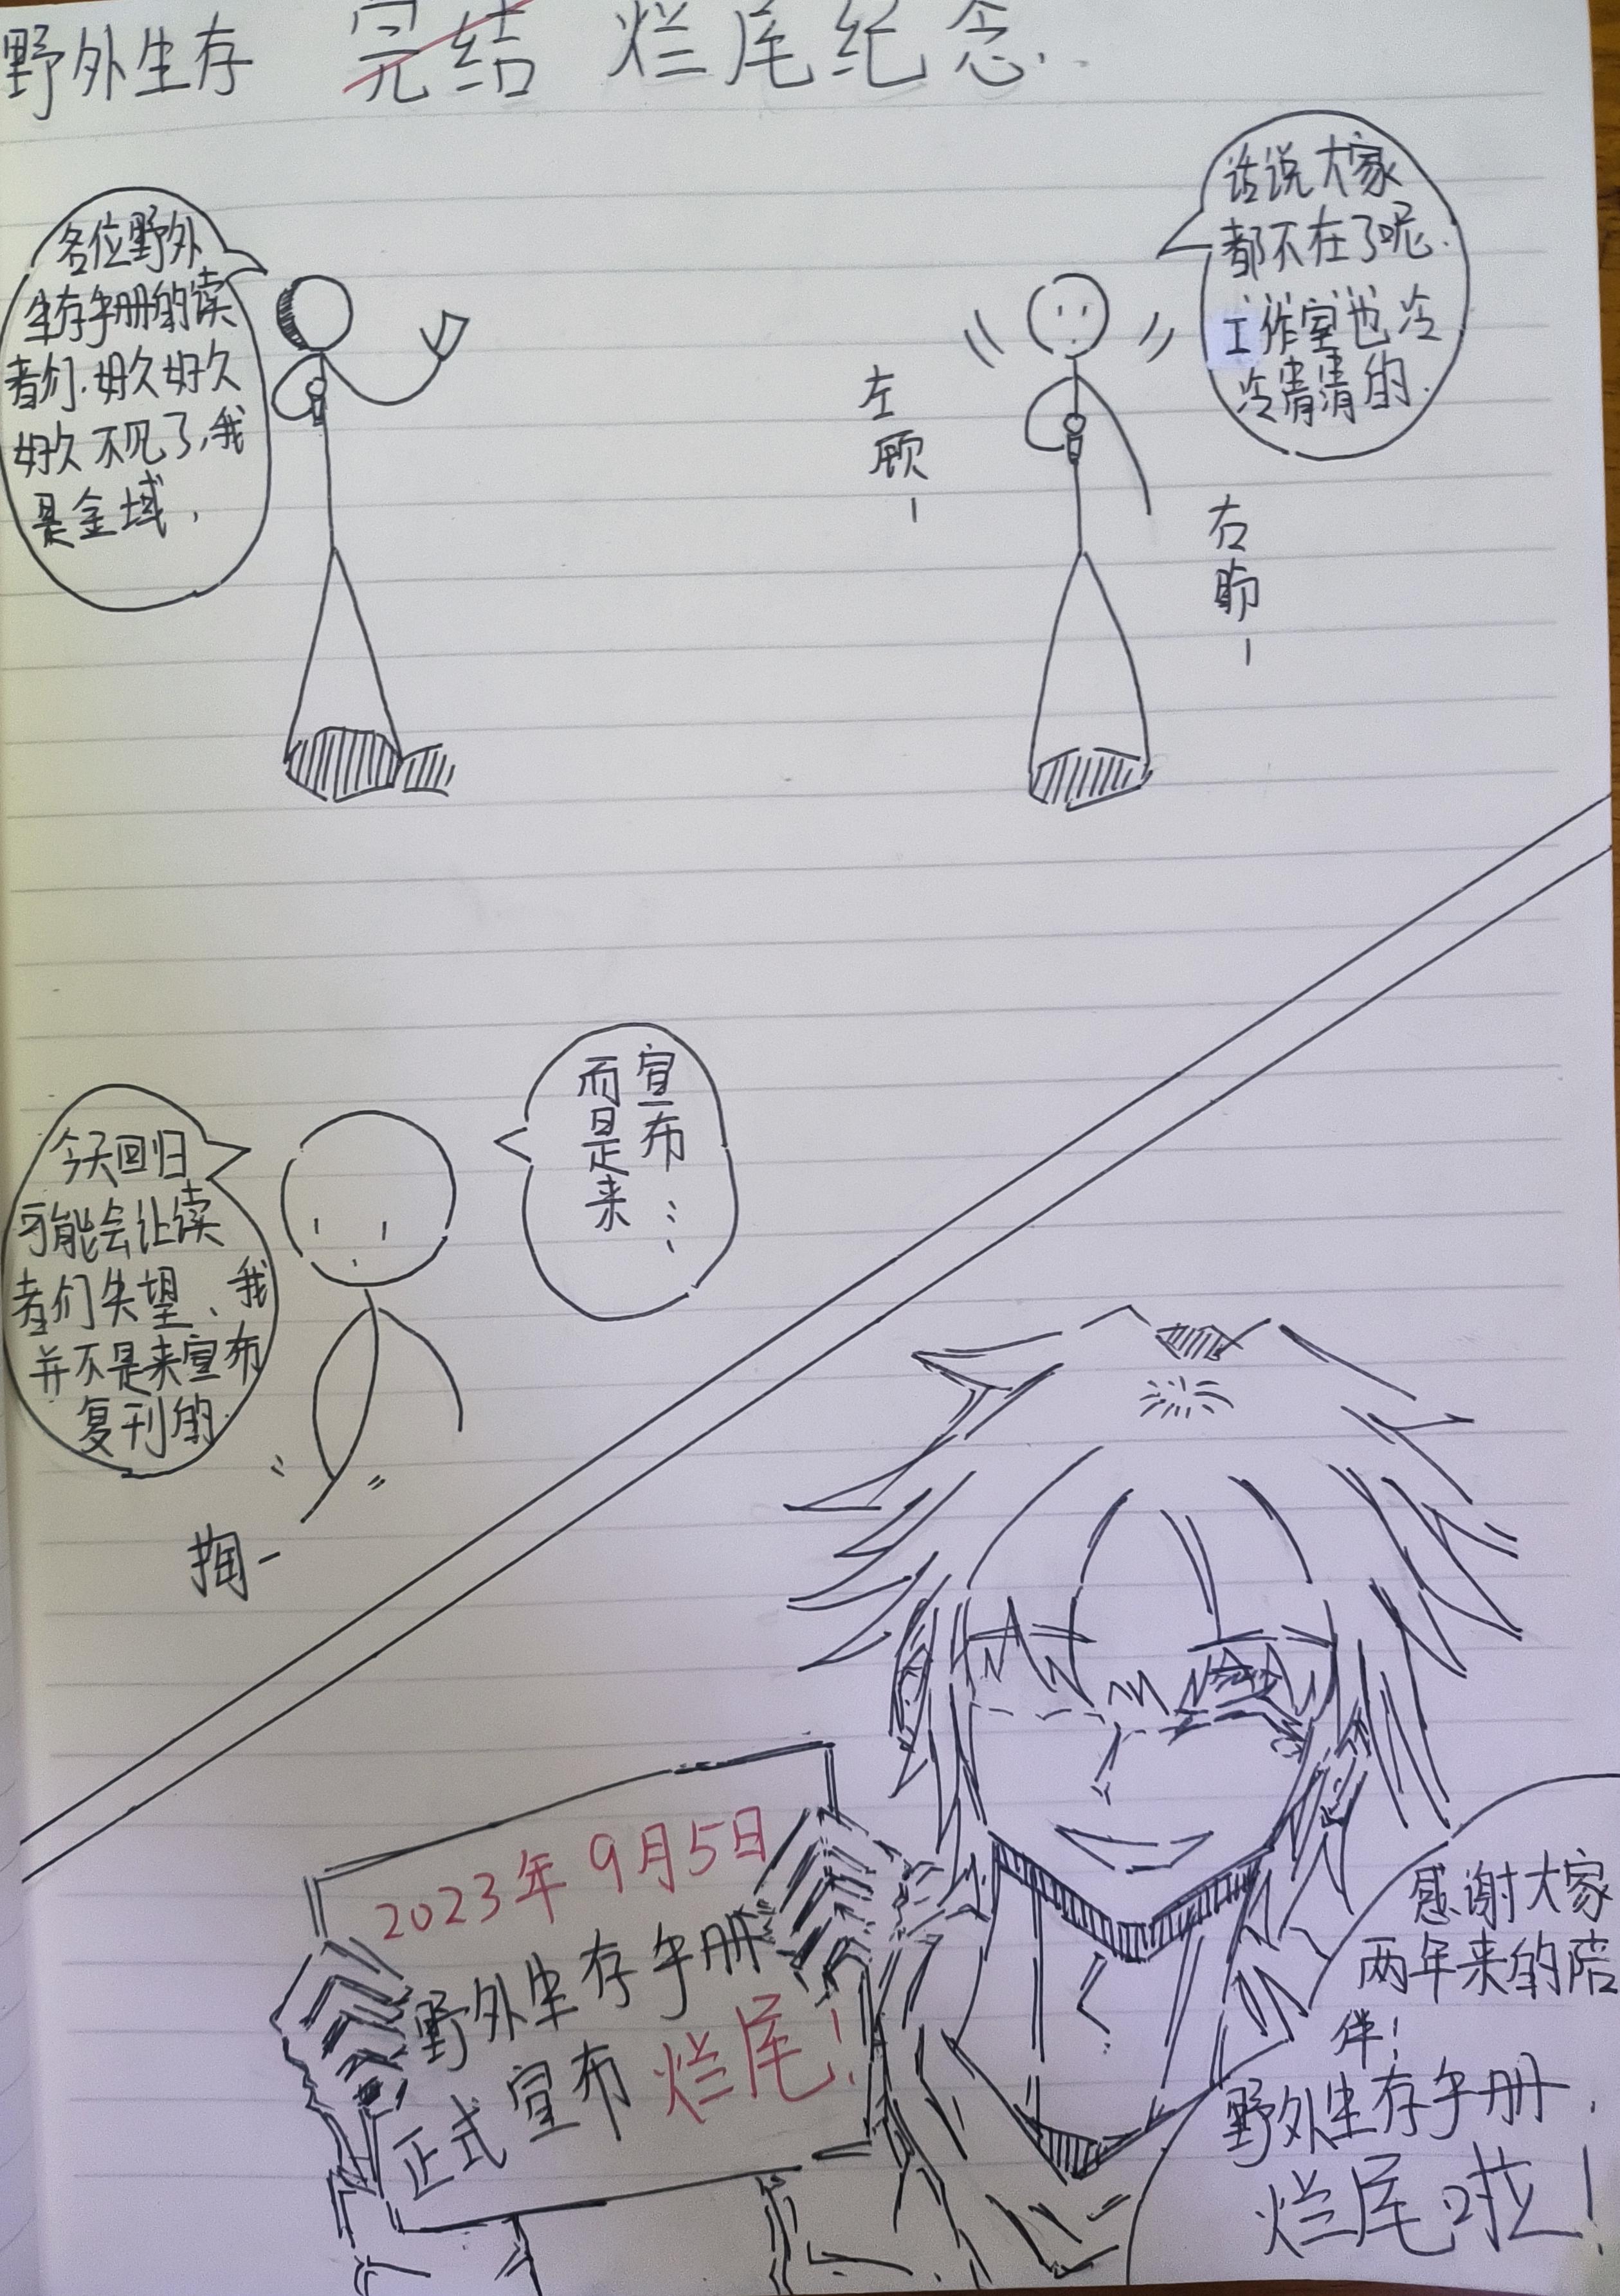 野外生存 完结 烂尾纪念.
各位野外
生存手册的读
者们.好久好久
好久不见了,我
是金域,
话说大家
都不在了呢.
工作室也冷
冷清清的.
左顾-
右盼-
今天回归
可能会让读
者们失望、我
并不是来宣布
复刊的.
而是来
宣布……
掏-
2023年9月5日
野外生存手册
正式宣布烂尾!
感谢大家
两年来的陪
伴!
野外生存手册,
烂尾啦!